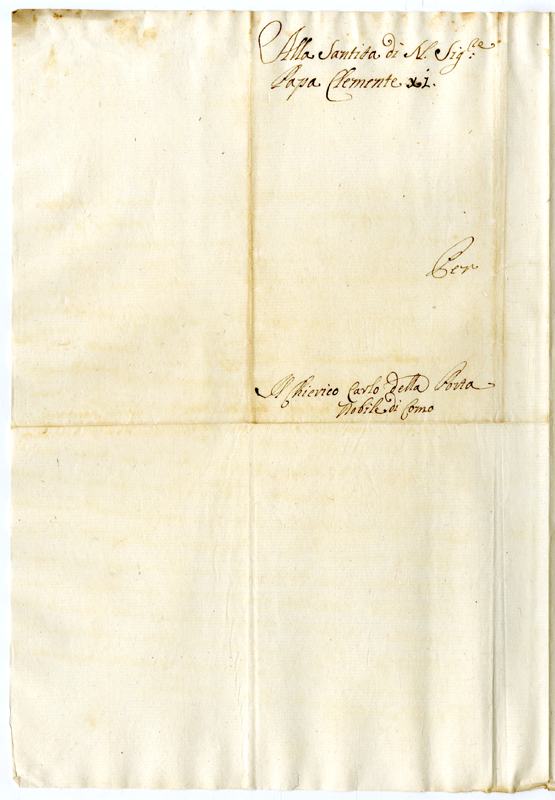 Alla Santità di N. Sig:re
Papa Clemente xi.
Per
Il Chierico Carlo della Porta
Nobile di Como